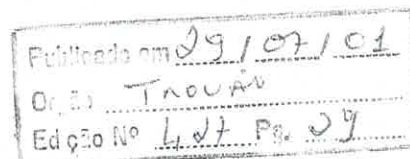 Publicado em 29/07/01
Órgão TROVÃO
Edição Nº 427 Pg. 29